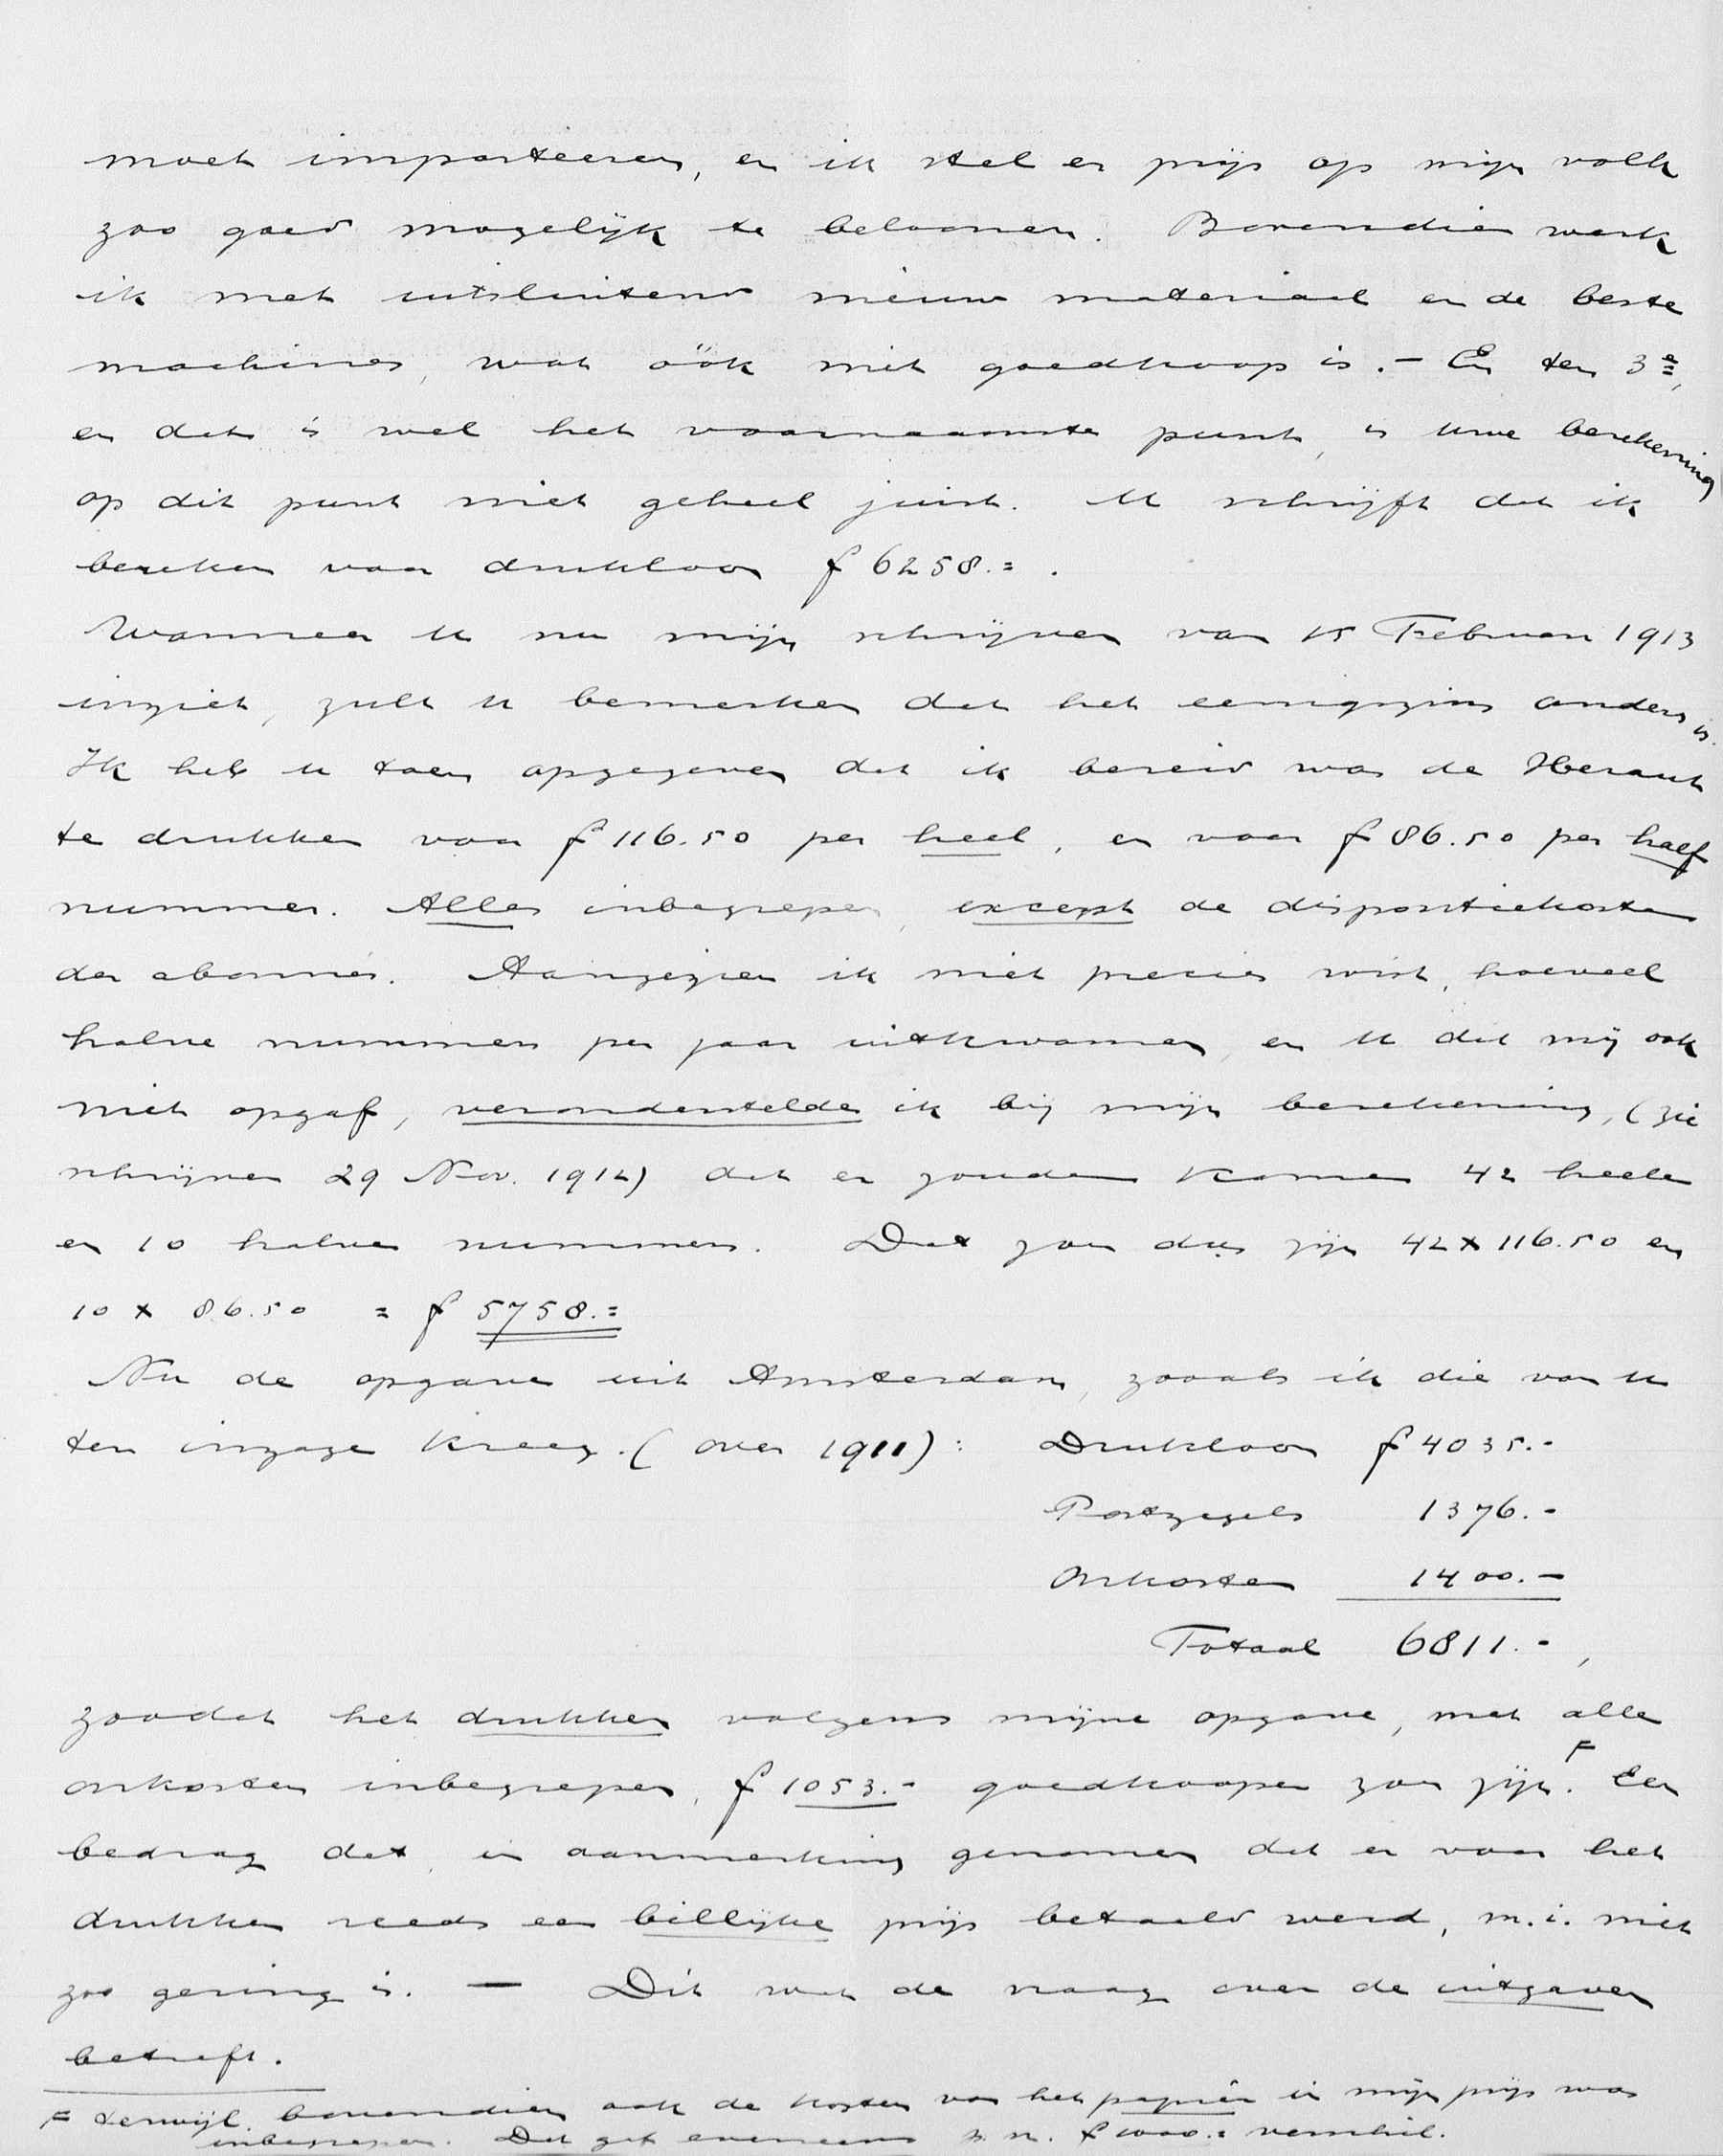 moet importeeren, en ik stel er prijs op mijn volk
zoo goed mogelijk te beloonen. Bovendien werk
ik met uitsluitend nieuw materiaal en de beste
machines, wat óók niet goedkoop is. – En ten 3e,
en dat is wel het voornaamste punt, is Uwe berekening
op dit punt niet geheel juist. U schrijft dat ik
bereken voor drukloon f 6258.= .
Wanneer U nu mijn schrijven van 15 Februari 1913
inziet, zult U bemerken dat het eenigszins anders is.
Ik heb U toen opgegeven dat ik bereid was de Heraut
te drukken voor f 116.50 per heel, en voor f 86.50 per half
nummer. Alles inbegrepen, except de dispositiekosten
der abonnés. Aangezien ik niet precies wist, hoeveel
halve nummers per jaar uitkwamen, en U dat mij ook
niet opgaf, veronderstelde ik bij mijn berekening, (zie
schrijven 29 Nov. 1912) dat er zouden komen 42 heele
en 10 halve nummers. Dat zou dus zijn 42 x 116.50 en
10 x 86.50 = f 5758.=
Nu de opgave uit Amsterdam, zooals ik die van U
ter inzage kreeg. (over 1911): Drukloon f 4035.-
Postzegels 1376.-
Onkosten 1400.-
Totaal 6811.-,
zoodat het drukken volgens mijne opgave, met alle
onkosten inbegrepen, f 1053.- goedkooper zou zijn. F Een
bedrag dat, in aanmerking genomen dat er voor het
drukken reeds een billijke prijs betaald werd, m.i. niet
zoo gering is. — Dit wat de vraag over de uitgaven
betreft.
F terwijl bovendien ook de kosten van het papier in mijn prijs was
inbegrepen. Dat gaf eveneens f 1000.= verschil.